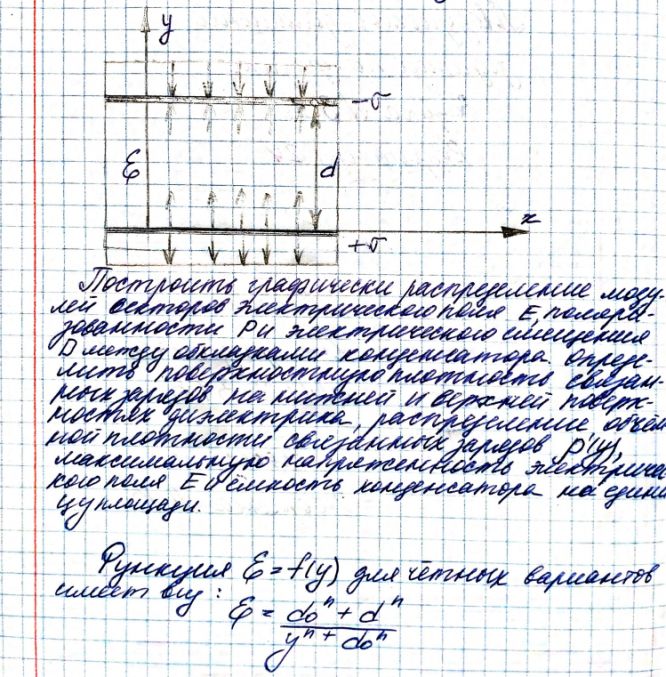 y
-σ
ε
d
x
+σ
Построить графически распределение моду-
лей векторов электрического поля E, поляри-
зованности P и электрического смещения
D между обкладками конденсатора. Опреде-
лить поверхностную плотность связан-
ных зарядов на нижней и верхней поверх-
ностях диэлектрика, распределение объём
ной плотности связанных зарядов ρ'(y),
максимальную напряженность электриче
кого поля E и ёмкость конденсатора на едини
цу площади.
Функция ε = f(y) для чётных вариантов
имеет вид:
ε = (d₀ⁿ + dⁿ) / (yⁿ + d₀ⁿ)